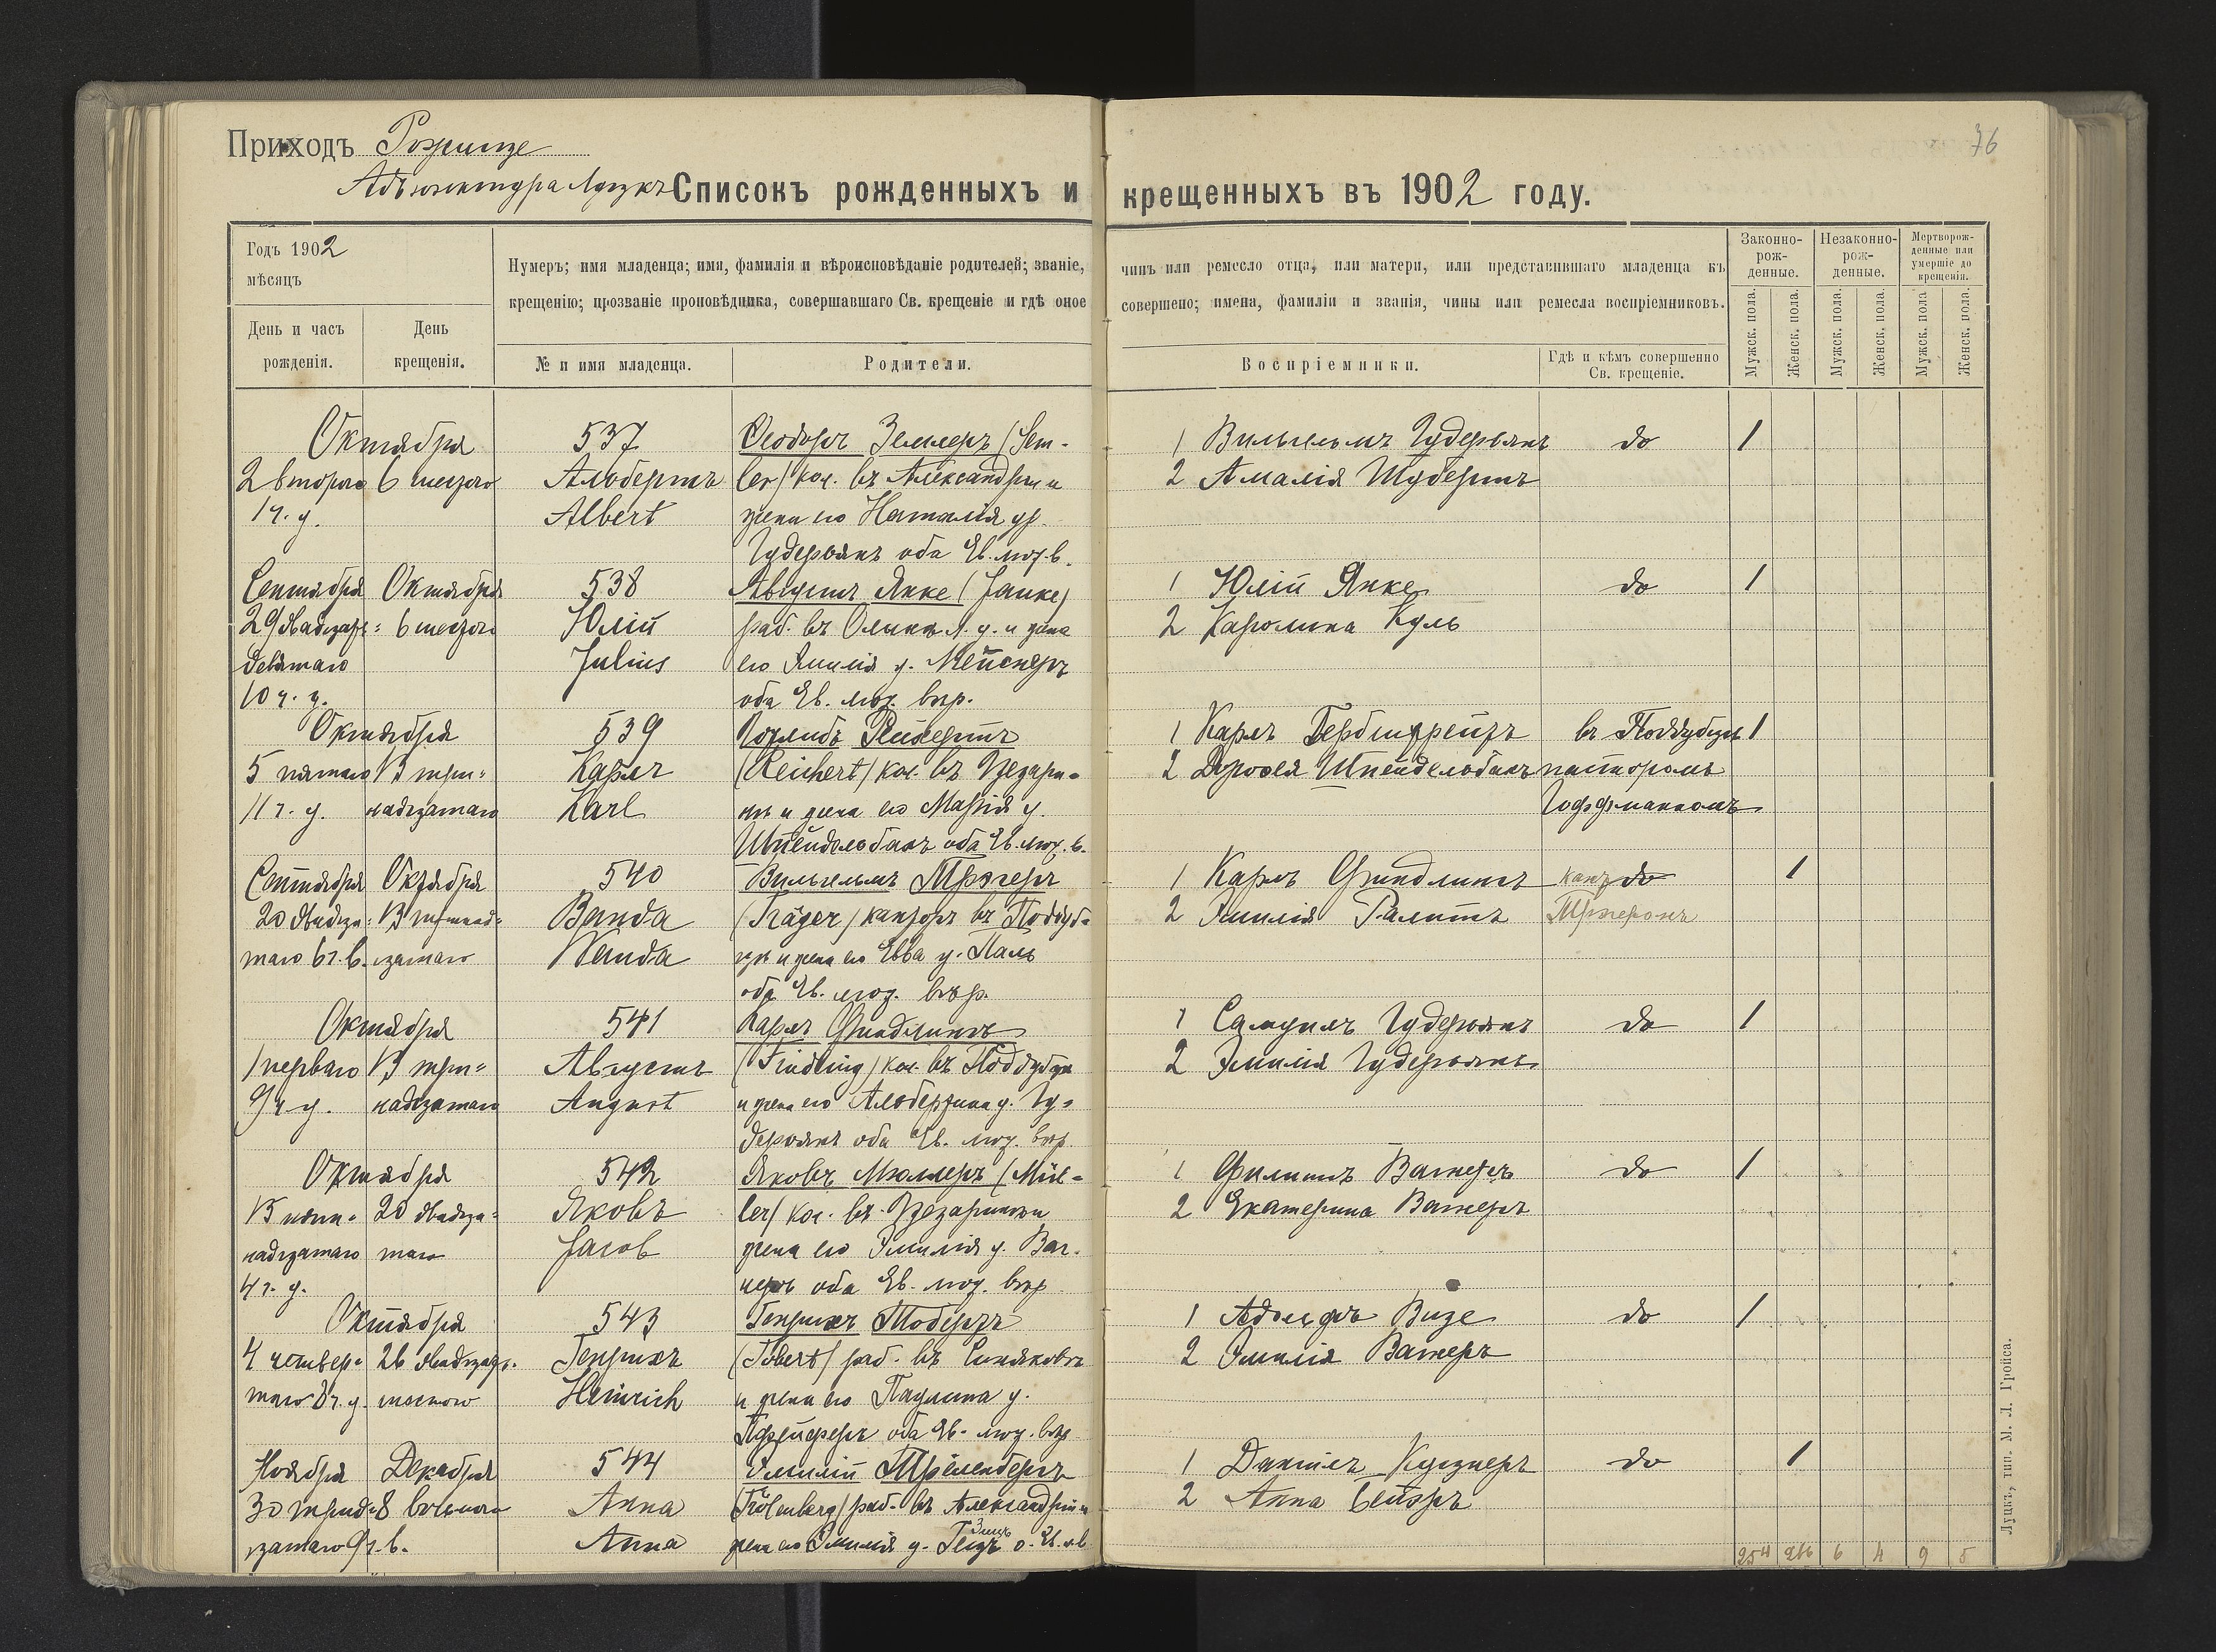 Приходъ Рожище
Адъюнктура Луцкъ
Списокъ рожденныхъ и крещенныхъ въ 1902 году.
76
Годъ 1902
мѣсяцъ
День и часъ рожденія.
День крещенія.
Нумеръ; имя младенца; имя, фамилія и вѣроисповѣданіе родителей; званіе, чинъ или ремесло отца, или матери, или представившаго младенца къ
крещенію; прозваніе проповѣдника, совершавшаго Св. крещеніе и гдѣ оное совершено; имена, фамиліи и званія, чины или ремесла воспріемниковъ.
№ и имя младенца.
Родители.
Воспріемники.
Гдѣ и кѣмъ совершенно Св. крещеніе.
Законно-рож-денные.
Незаконно-рож-денные.
Мертворож-денные или умершіе до крещенія.
Мужск. пола.
Женск. пола.
Мужск. пола.
Женск. пола.
Мужск. пола
Женск. пола.
Октября
2 второго
1 ч. у.
6 шестого
537
Альбертъ
Albert
Теодоръ Землеръ (Sem-
ler) кол. въ Александріи и
жена его Наталія ур.
Гудерьянъ оба Ев. лют. в.
1 Вильгельмъ Гудерьянъ
2 Амалія Шубертъ
do
1
Сентября
29 двадцать
девятаго
10 ч. у.
Октября
6 шестого
538
Юлій
Julius
Августъ Янке (Janke)
раб. въ Олыка и жена
его Эмилія у. Мейснеръ
оба Ев. лют. вѣр.
1 Юлій Янке
2 Каролина Куль
do
1
Октября
5 пятаго
11 ч. у.
13 три-
надцатаго
539
Карлъ
Karl
Готлибъ Рейхертъ
(Reichert) кол. въ Цезари-
нѣ и жена его Марія у.
Шпейдельбахъ оба Ев. лют. в.
1 Карлъ Гербштрейтъ
2 Доротея Шпейдельбахъ
въ Поддубцы
пасторомъ
Гоффманномъ
1
Сентября
20 двадца-
таго 6 ч. в.
Октября
13 тринад-
цатаго
540
Ванда
Wanda
Вильгельмъ Трэгеръ
(Träger) канторъ въ Поддуб-
цы и жена его Евва у. Паль
оба Ев. лют. вѣр.
1 Карлъ Финдлингъ
2 Эмилія
кант. do
Трэгеромъ
1
Октября
1 перваго
9 ч у.
13 три-
надцатаго
541
Августъ
August
Карлъ Финдлингъ
(Findling) кол. въ Поддубцы
и жена его Альбертина у. Гу-
дерьянъ оба Ев. лют. вѣр.
1 Самуилъ Гудерьянъ
2 Эмилія Гудерьянъ
do
1
Октября
15 пят-
надцатаго
4 ч. у.
20 двадца-
таго
542
Яковъ
Jacob
Яковъ Мюллеръ (Mül-
ler) кол. въ Цезаринъ и
жена его Эмилія у. Ваг-
неръ оба Ев. лют. вѣр
1 Филиппъ Вагнеръ
2 Екатерина Вагнеръ
do
1
Октября
4 четвер-
таго 8 ч. у.
26 двадцать
шестого
543
Генрихъ
Heinrich
Генрихъ Тобертъ
(Tobert) раб. въ
и жена его Паулина у.
Пфейферъ оба Ев. лют. вѣр
1 Адольфъ Визе
2 Эмилія Вагнеръ
do
1
Ноября
30 трид-
цатаго 9 ч. в.
Декабря
8 восьмого
544
Анна
Anna
Эмилій Трёленбергъ
(Trölenberg) раб. въ Александріи и
жена его Эмилія у.
1 Даніилъ Куцнеръ
2 Анна
do
1
254 216 6 4 9 5
Луцкъ, тип. М. Л. Гройса.